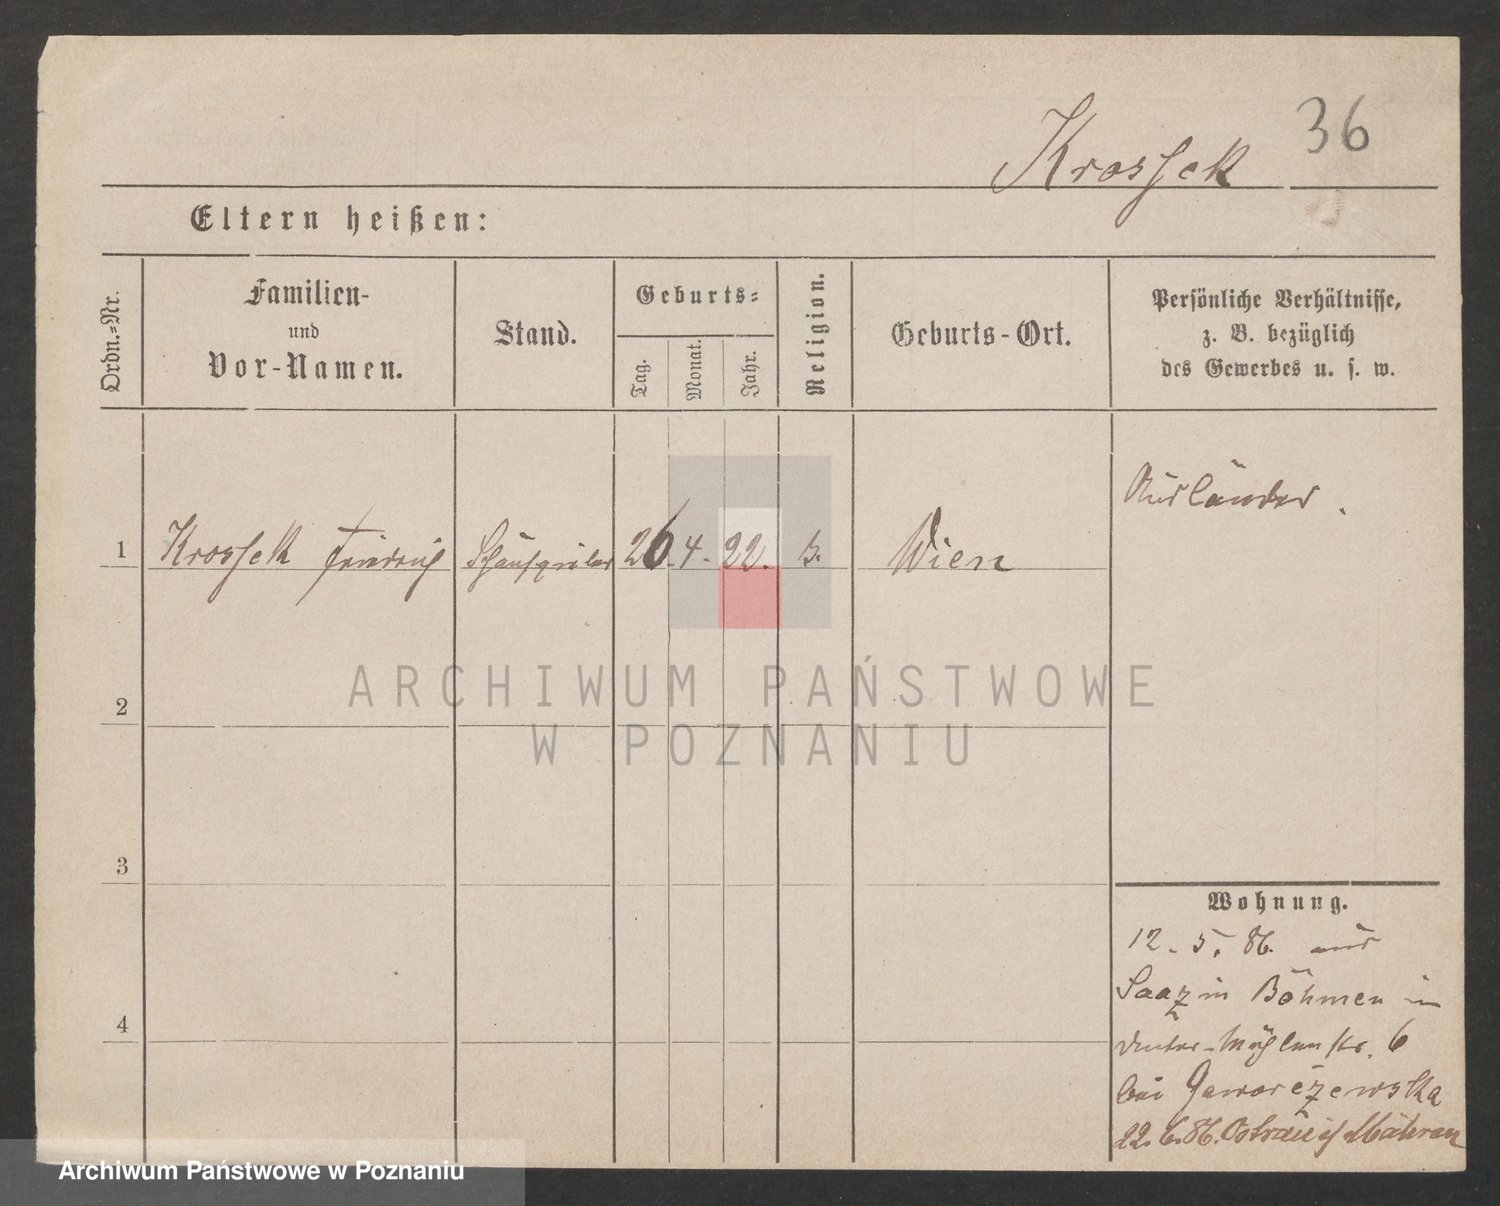 36
Krossek
Eltern heißen:
Ordn.-Nr.
Familien-
und
Vor-Namen.
Stand.
Geburts-
Tag.
Monat.
Jahr.
Religion.
Geburts-Ort.
Persönliche Verhältnisse,
z. B. bezüglich
des Gewerbes u. s. w.
Ausländer.
1 Krossek Friedrich Schauspieler 26. 4. 22. Wien
2
3
4
Wohnung.
12. 5. 86. aus
Saaz in Böhmen in
Mühlenstr. 6
bei Gaworczewska
22. 6. 86. Ostrau i/ Mähren
ARCHIWUM PAŃSTWOWE
W POZNANIU
Archiwum Państwowe w Poznaniu